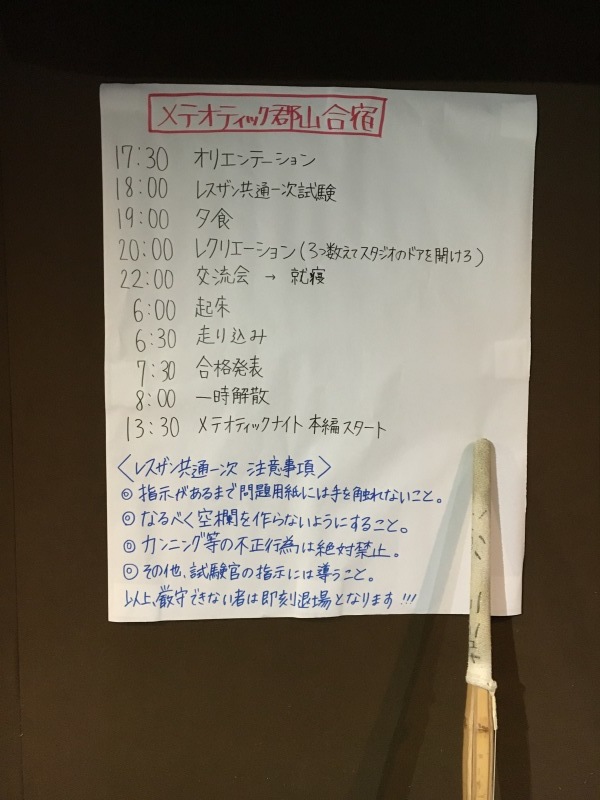 メテオティック郡山合宿
17:30 オリエンテーション
18:00 レスザン共通一次試験
19:00 夕食
20:00 レクリエーション(3つ数えてスタジオのドアを開けろ)
22:00 交流会 → 就寝
6:00 起床
6:30 走り込み
7:30 合格発表
8:00 一時解散
13:30 メテオティックナイト本編スタート
〈レスザン共通一次 注意事項〉
◎指示があるまで問題用紙には手を触れないこと。
◎なるべく空欄を作らないようにすること。
◎カンニング等の不正行為は絶対禁止。
◎その他、試験官の指示には導うこと。
以上、厳守できない者は即刻退場となります!!!